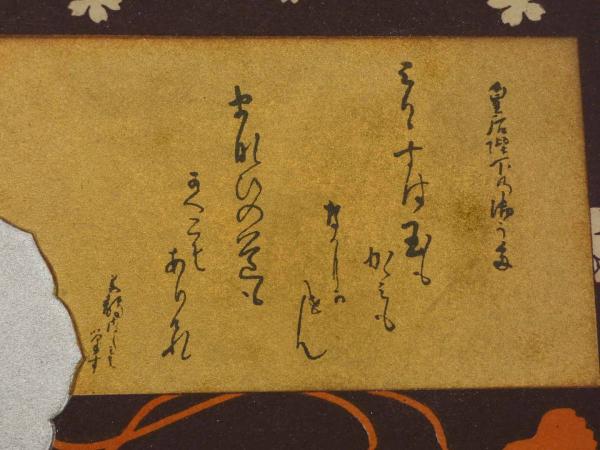 皇后陛下の御うた
みかゝすは玉も
かゝみも
なにかせん
まなひの道も
かくこそ
ありけれ